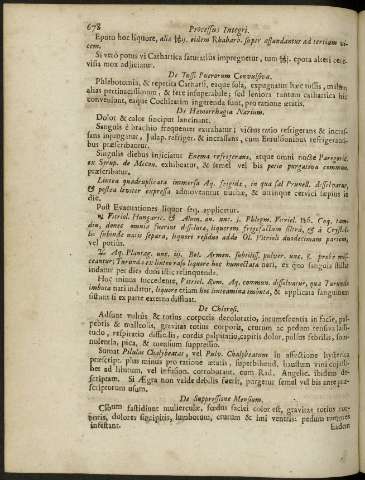 678 Processus Integri.
Epoto hoc liquore, alia ℔ij. eidem Rhabarb. super affundantur ad tertiam vicem.
Si vero potus vi Cathartica saturatius impregnetur, tum ℔j. epota alteri
vissa mox adjiciatur.
De Tussi Puerorum Convulsiva.
Phlebotomia, & repetita Catharsi, eaque sola, expugnatur hæc tussis, malum
alias pertinacissimum, & fere insuperabile; sed leniora tantum cathartica hic
conveniunt, eaque Cochleatim ingerenda sunt, pro ratione ætatis.
De Hæmorrhagia Narium.
Dolor & calor sinciput lancinant.
Sanguis è brachio frequenter extrahatur; victus ratio refrigerans & incrassans
injungitur, Julap. refriger. & incrassans, cum Emulsionibus refrigerantibus
præscribatur.
Singulis diebus injiciatur Enema refrigerans, atque omni nocte Paregoric.
ex Syrup. de Mecon. exhibeatur, & semel vel bis potio purgativa commun.
præscribatur.
Lintea quadruplicata immersa Aq. frigidæ, in qua sal Prunell. dissolvatur,
& postea leviter expressa admoveantur nuchæ, & utrinque cervici sæpius in
die.
Post Evacuationes liquor seq. applicetur.
Vitriol. Hungaric. & Alum. an. unc. j. Phlegm. Vitriol. ℔ß. Coq. tamdiu,
donec omnia fuerint dissoluta, liquorem frigefactum filtra, & à Crystallis
subinde natis separa, liquori residuo adde Ol. Vitrioli duodecimam partem,
vel potius,
℞ Aq. Plantag. unc. iij. Bol. Armen. subtiliss. pulver. unc. ß. probe misceantur;
Turunda ex linteo rasò liquore hoc humectata nari, ex quo sanguis stillat
indatur per dies duos istic relinquenda.
Hoc minus succedente, Vitriol. Rom. Aq. commun. dissolvatur, qua Turunda
imbuta nari indatur, liquore etiam hoc linteamina intincta, & applicata sanguinem
sistunt si ex parte externa diffluat.
De Chlorosi.
Adsunt vultus & totius corporis decoloratio, intumescentia in facie, palpebris
& malleolis, gravitas totius corporis, crurum ac pedum tensiva lassitudo,
respiratio difficilis, cordis palpitatio, capitis dolor, pulsus febrilis, somnulentia,
pica, & mensium suppressio.
Sumat Pilulas Chalybeatas, vel Pulv. Chalybeatum in affectione hysterica
præscript. plus minus pro ratione ætatis, superbibendo haustum vini
ad libitum, vel infusion. corroborant. cum Rad. Angelic. ibidem descriptam.
Si Ægra non valde debilis fuerit, purgetur semel vel bis ante præscriptorum
usum.
De Suppressione Mensium.
Cibum fastidiunt mulierculæ, fœdus faciei color est, gravitas totius corporis,
dolores sincipitis, lumborum, crurum & imi ventris: pedum tumores
infestant.
Eadem